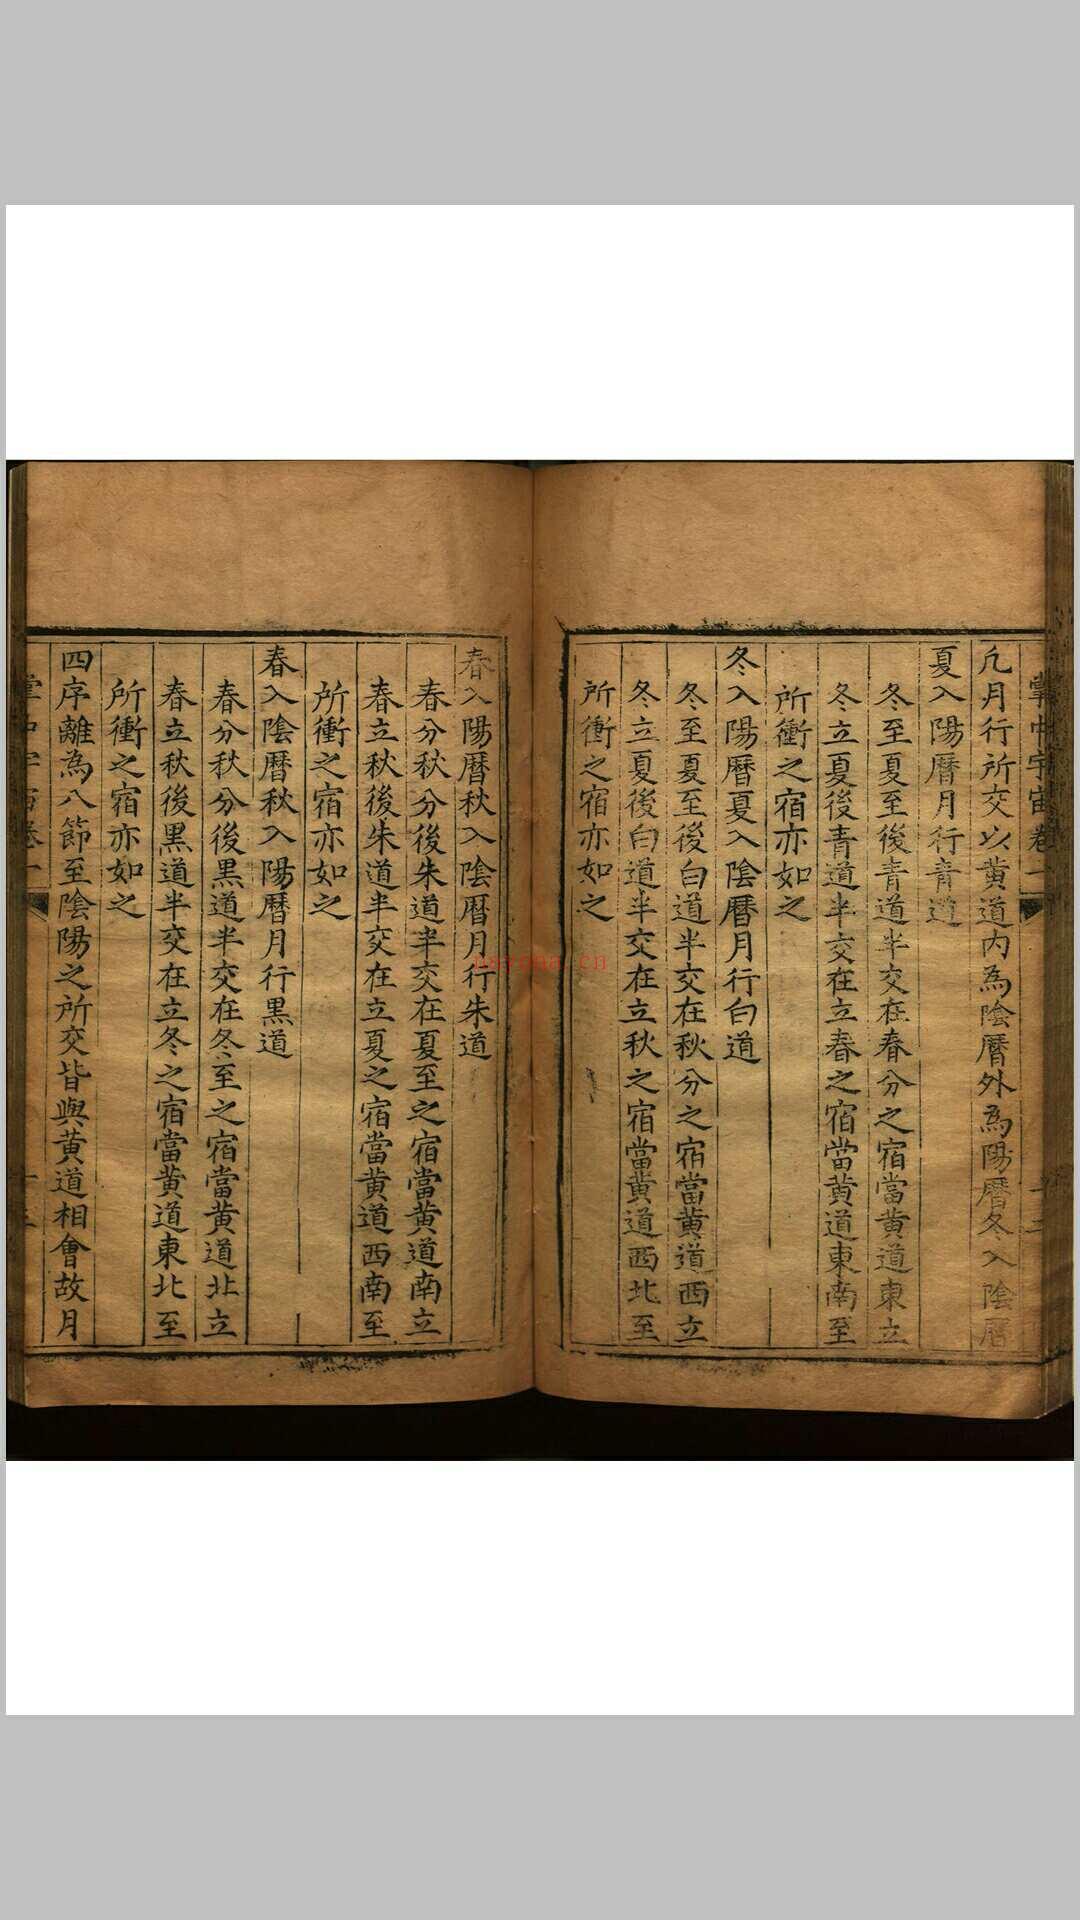 掌中宇宙卷一
凡月行所交以黄道内為陰曆外為陽曆冬入陰曆
夏入陽曆月行青道
冬至夏至後青道半交在春分之宿當黄道東立
冬立夏後青道半交在立春之宿當黄道東南至
所衝之宿亦如之
冬入陽曆夏入陰曆月行白道
冬至夏至後白道半交在秋分之宿當黄道西立
冬立夏後白道半交在立秋之宿當黄道西北至
所衝之宿亦如之
春入陽曆秋入陰曆月行朱道
春分秋分後朱道半交在夏至之宿當黄道南立
春立秋後朱道半交在立夏之宿當黄道西南至
所衝之宿亦如之
春入陰曆秋入陽曆月行黒道
春分秋分後黒道半交在冬至之宿當黄道北立
春立秋後黒道半交在立冬之宿當黄道東北至
所衝之宿亦如之
四序離為八節至陰陽之所交皆與黄道相會故月
nayona.cn